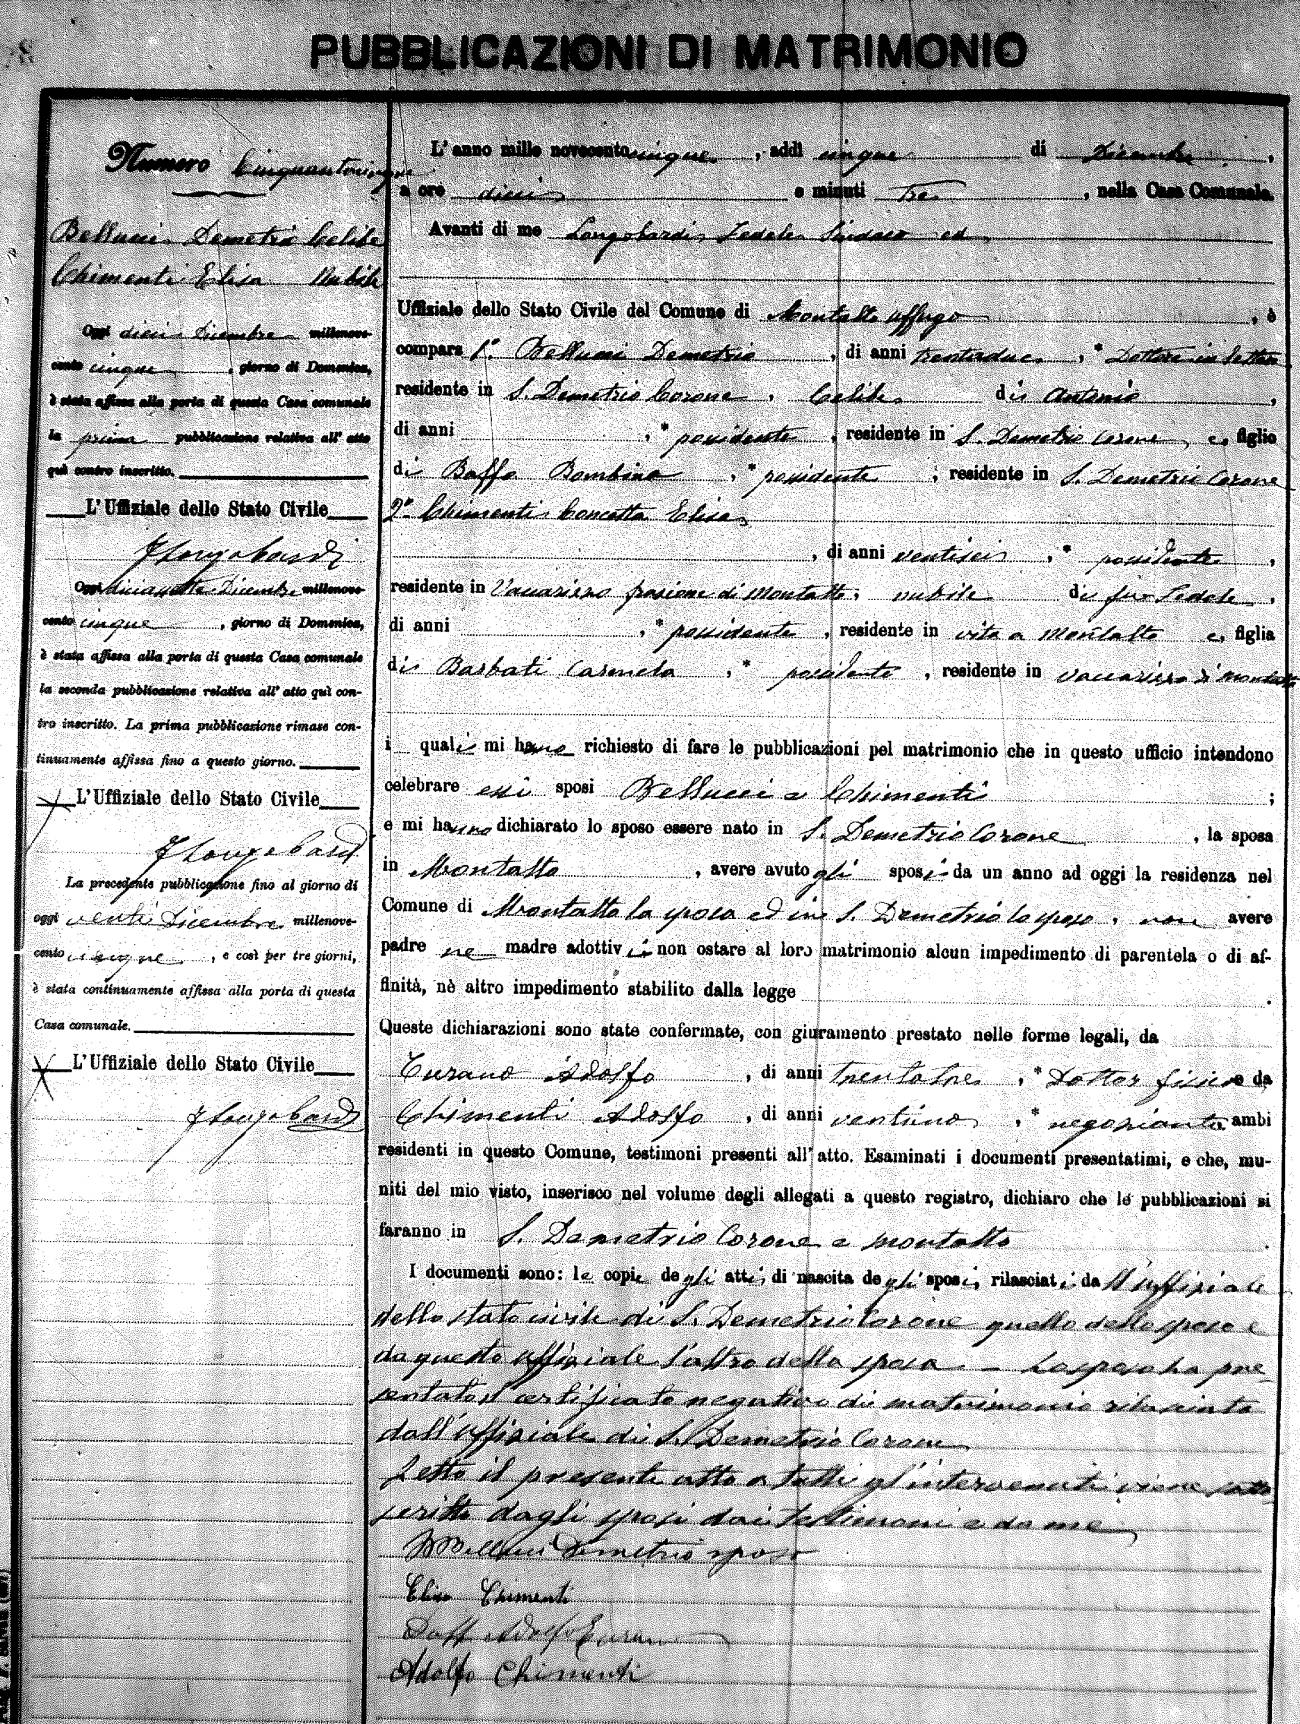 PUBBLICAZIONI DI MATRIMONIO
Numero Cinquantacinque
Bellucci Demetrio Celibe
Chimenti Elisa Nubile
Oggi dieci Dicembre millenove-
cento cinque, giorno di Domenica,
è stata affissa alla porta di questa Casa comunale
la prima pubblicazione relativa all' atto
quì contro inscritto.
L' Uffiziale dello Stato Civile
FLongobardi
Oggi diciassette Dicembre millenove-
cento cinque, giorno di Domenica,
è stata affissa alla porta di questa Casa comunale
la seconda pubblicazione relativa all' atto quì con-
tro inscritto. La prima pubblicazione rimase con-
tinuamente affissa fino a questo giorno.
L' Uffiziale dello Stato Civile
FLongobardi
La precedente pubblicazione fino al giorno di
oggi venti Dicembre millenove-
cento cinque, e così per tre giorni,
è stata continuamente affissa alla porta di questa
Casa comunale.
L' Uffiziale dello Stato Civile
FLongobardi
L' anno mille novecento cinque, addì cinque di Dicembre,
a ore dieci e minuti Tre, nella Casa Comunale.
Avanti di me Longobardi Fedele Sindaco ed
Uffiziale dello Stato Civile del Comune di Montalto Uffugo, è
compars 1º Bellucci Demetrio, di anni trentadue, * Dottore in Lettere
residente in S. Demetrio Corone, Celibe di Antonio,
di anni , * possidente, residente in S. Demetrio Corone, e figlio
di Baffa Bombina, * possidente, residente in S. Demetrio Corone
2º Chimenti Concetta Elisa
, di anni ventisei, * possidente,
residente in Vaccarizzo frazione di Montalto, nubile di fu Fedele,
di anni , * possidente, residente in vita a Montalto e figlia
di Barbati Carmela, * possidente, residente in Vaccarizzo di Montalto
i quali mi hanno richiesto di fare le pubblicazioni pel matrimonio che in questo ufficio intendono
celebrare essi sposi Bellucci e Chimenti ;
e mi hanno dichiarato lo sposo essere nato in S. Demetrio Corone, la sposa
in Montalto, avere avuto gli sposi da un anno ad oggi la residenza nel
Comune di Montalto la sposa ed in S. Demetrio lo sposo, non avere
padre ne madre adottivi non ostare al loro matrimonio alcun impedimento di parentela o di af-
finità, nè altro impedimento stabilito dalla legge .
Queste dichiarazioni sono state confermate, con giuramento prestato nelle forme legali, da
Turano Adolfo, di anni trentatre, * Dottor fisico e da
Chimenti Adolfo, di anni ventuno, * negoziante, ambi
residenti in questo Comune, testimoni presenti all' atto. Esaminati i documenti presentatimi, e che, mu-
niti del mio visto, inserisco nel volume degli allegati a questo registro, dichiaro che le pubblicazioni si
faranno in S. Demetrio Corone e Montalto .
I documenti sono: le copie degli atti di nascita degli sposi, rilasciati da ll'uffiziale
dello stato civile di S. Demetrio Corone quello dello sposo e
da questo uffiziale l'altro della sposa – Lo sposo ha pre-
sentato il certificato negativo di matrimonio rilasciato
dall'uffiziale di S. Demetrio Corone
Letto il presente atto a tutti gl'intervenuti viene sotto-
scritto dagli sposi dai testimoni e da me
Bellucci Demetrio sposo
Elisa Chimenti
Dott Adolfo Turano
Adolfo Chimenti